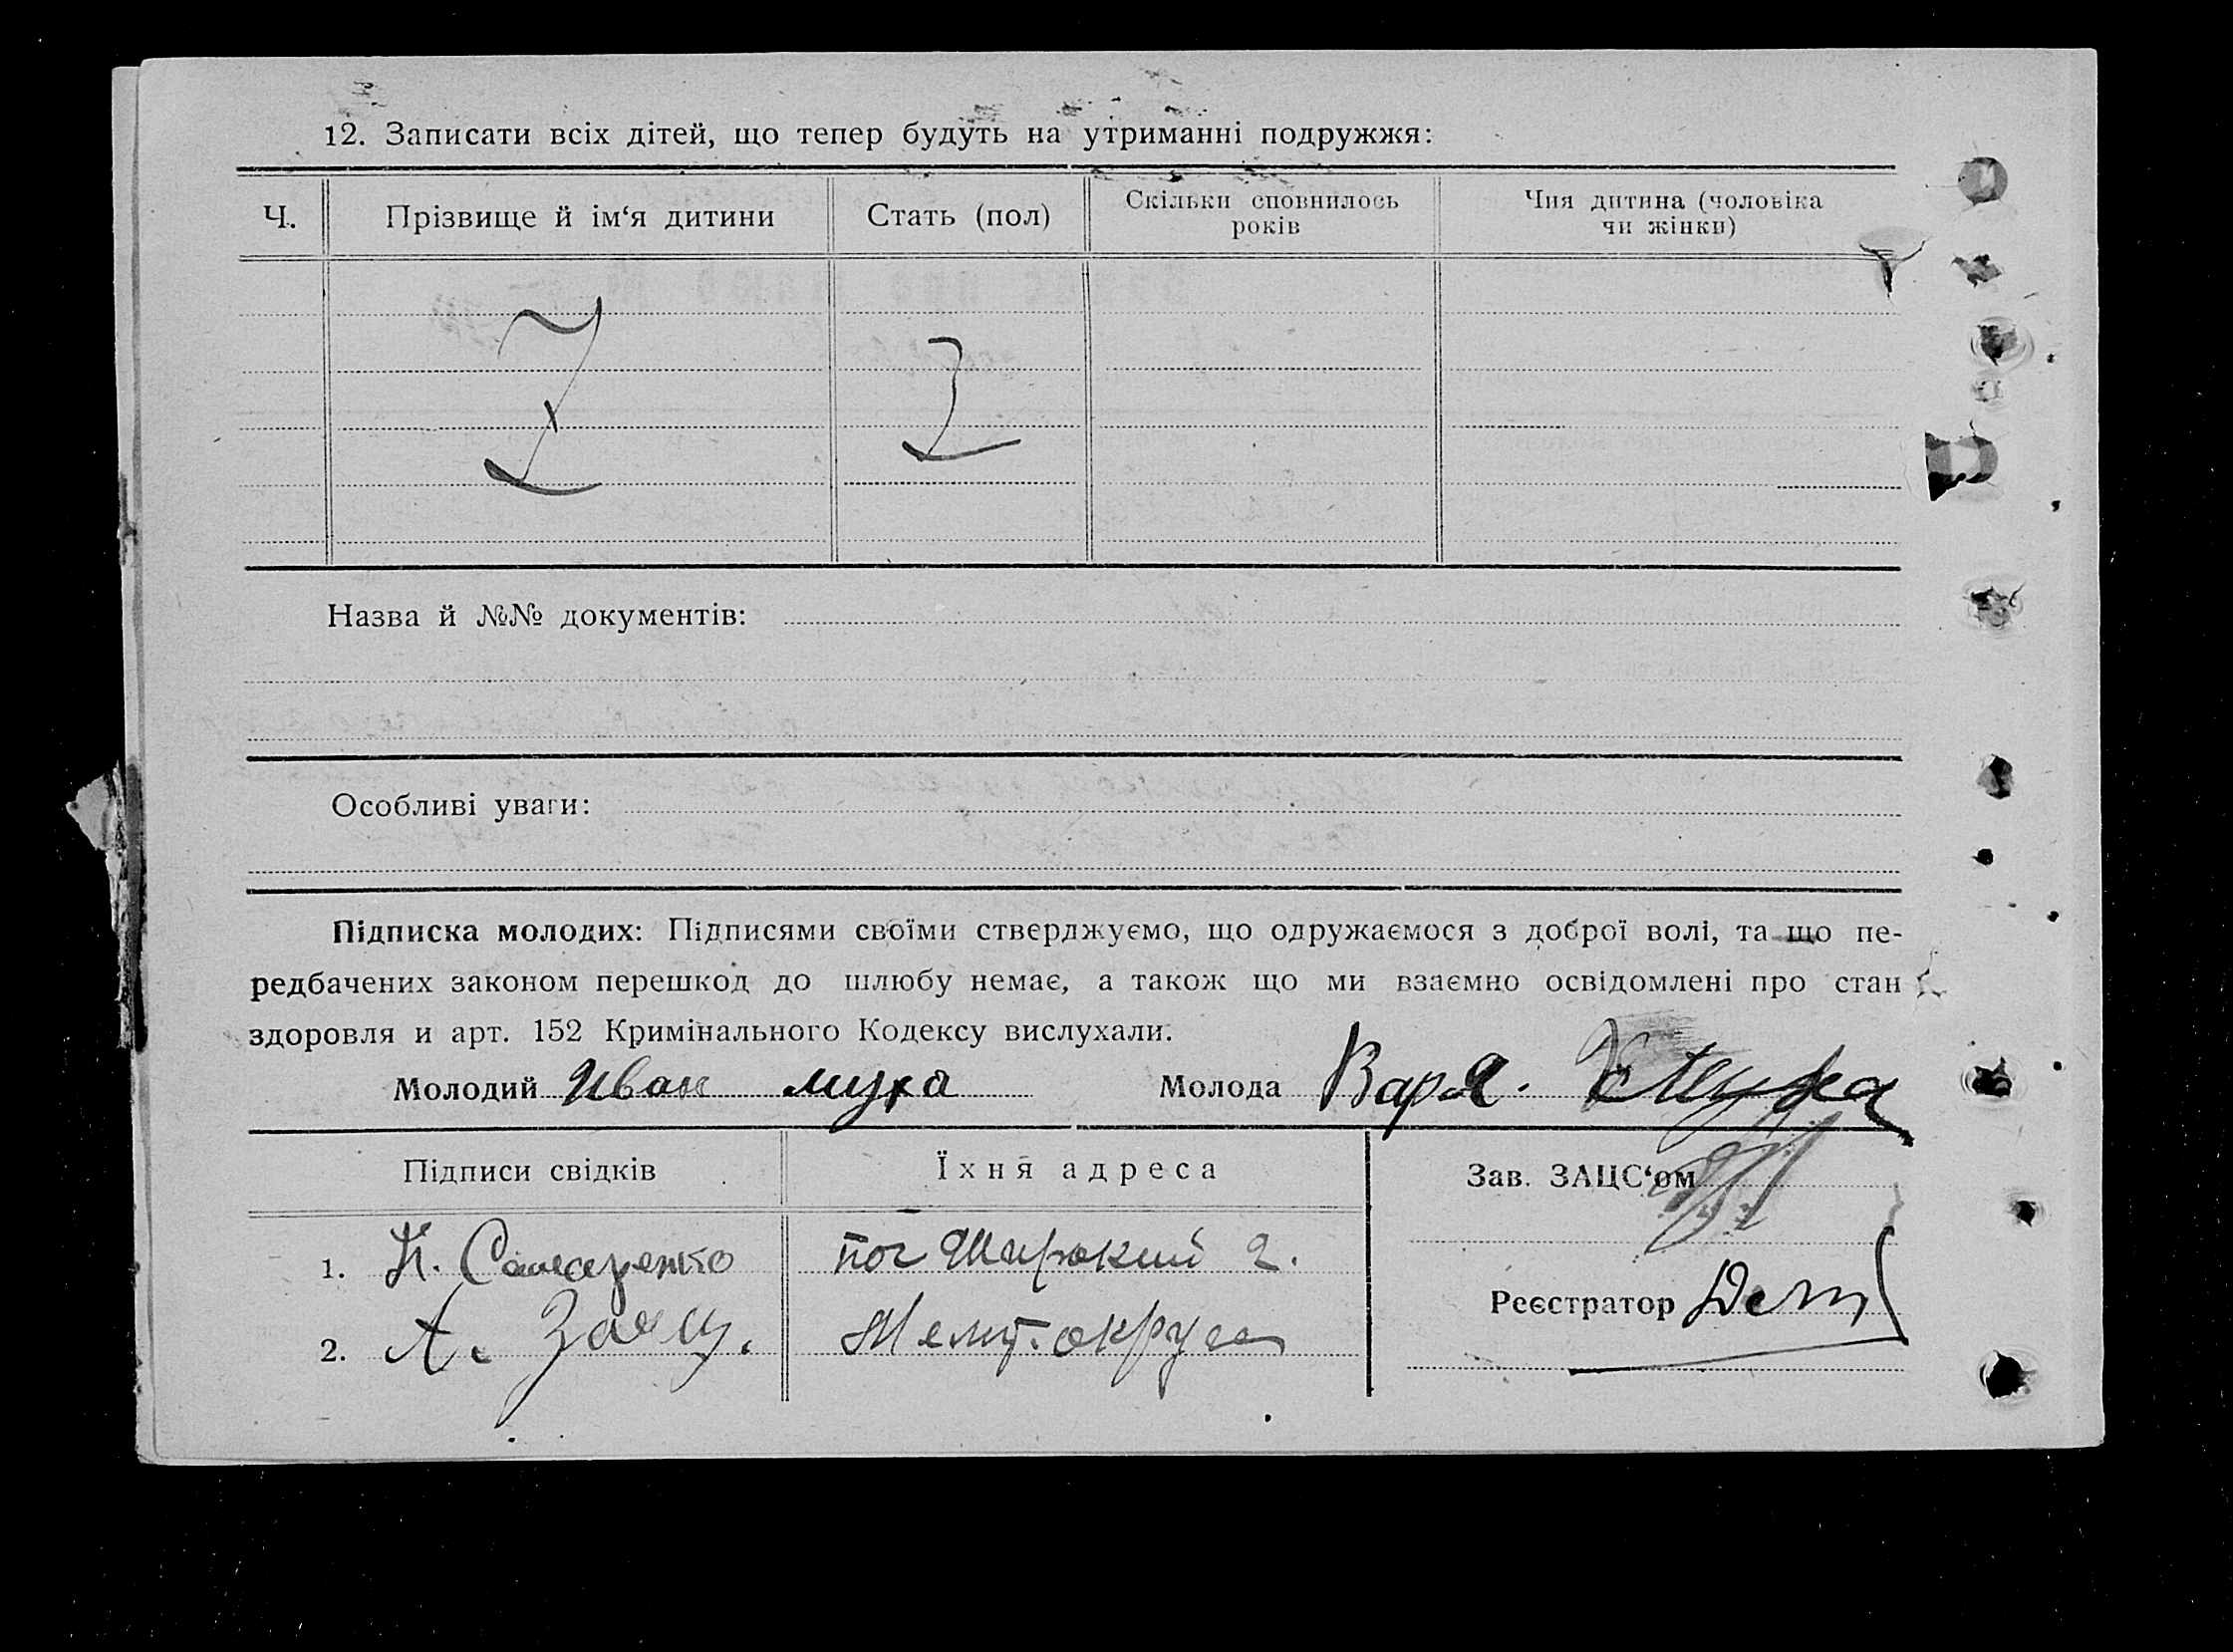 12. Записати всіх дітей, що тепер будуть на утриманні подружжя:
Ч. Прізвище й ім‘я дитини Стать (пол) Скільки сповнилось років Чия дитина (чоловіка чи жінки)
Z Z
Назва й №№ документів:
Особливі уваги:
Підписка молодих: Підписями своїми стверджуємо, що одружаємося з доброї волі, та що пе-
редбачених законом перешкод до шлюбу немає, а також що ми взаємно освідомлені про стан
здоровля и арт. 152 Кримінального Кодексу вислухали.
Молодий Иван муха Молода Варя. Муха
Підписи свідків Їхня адреса Зав. ЗАЦС‘ом
1. К. пос Широкий 2.
Реєстратор
2. А. Заец.